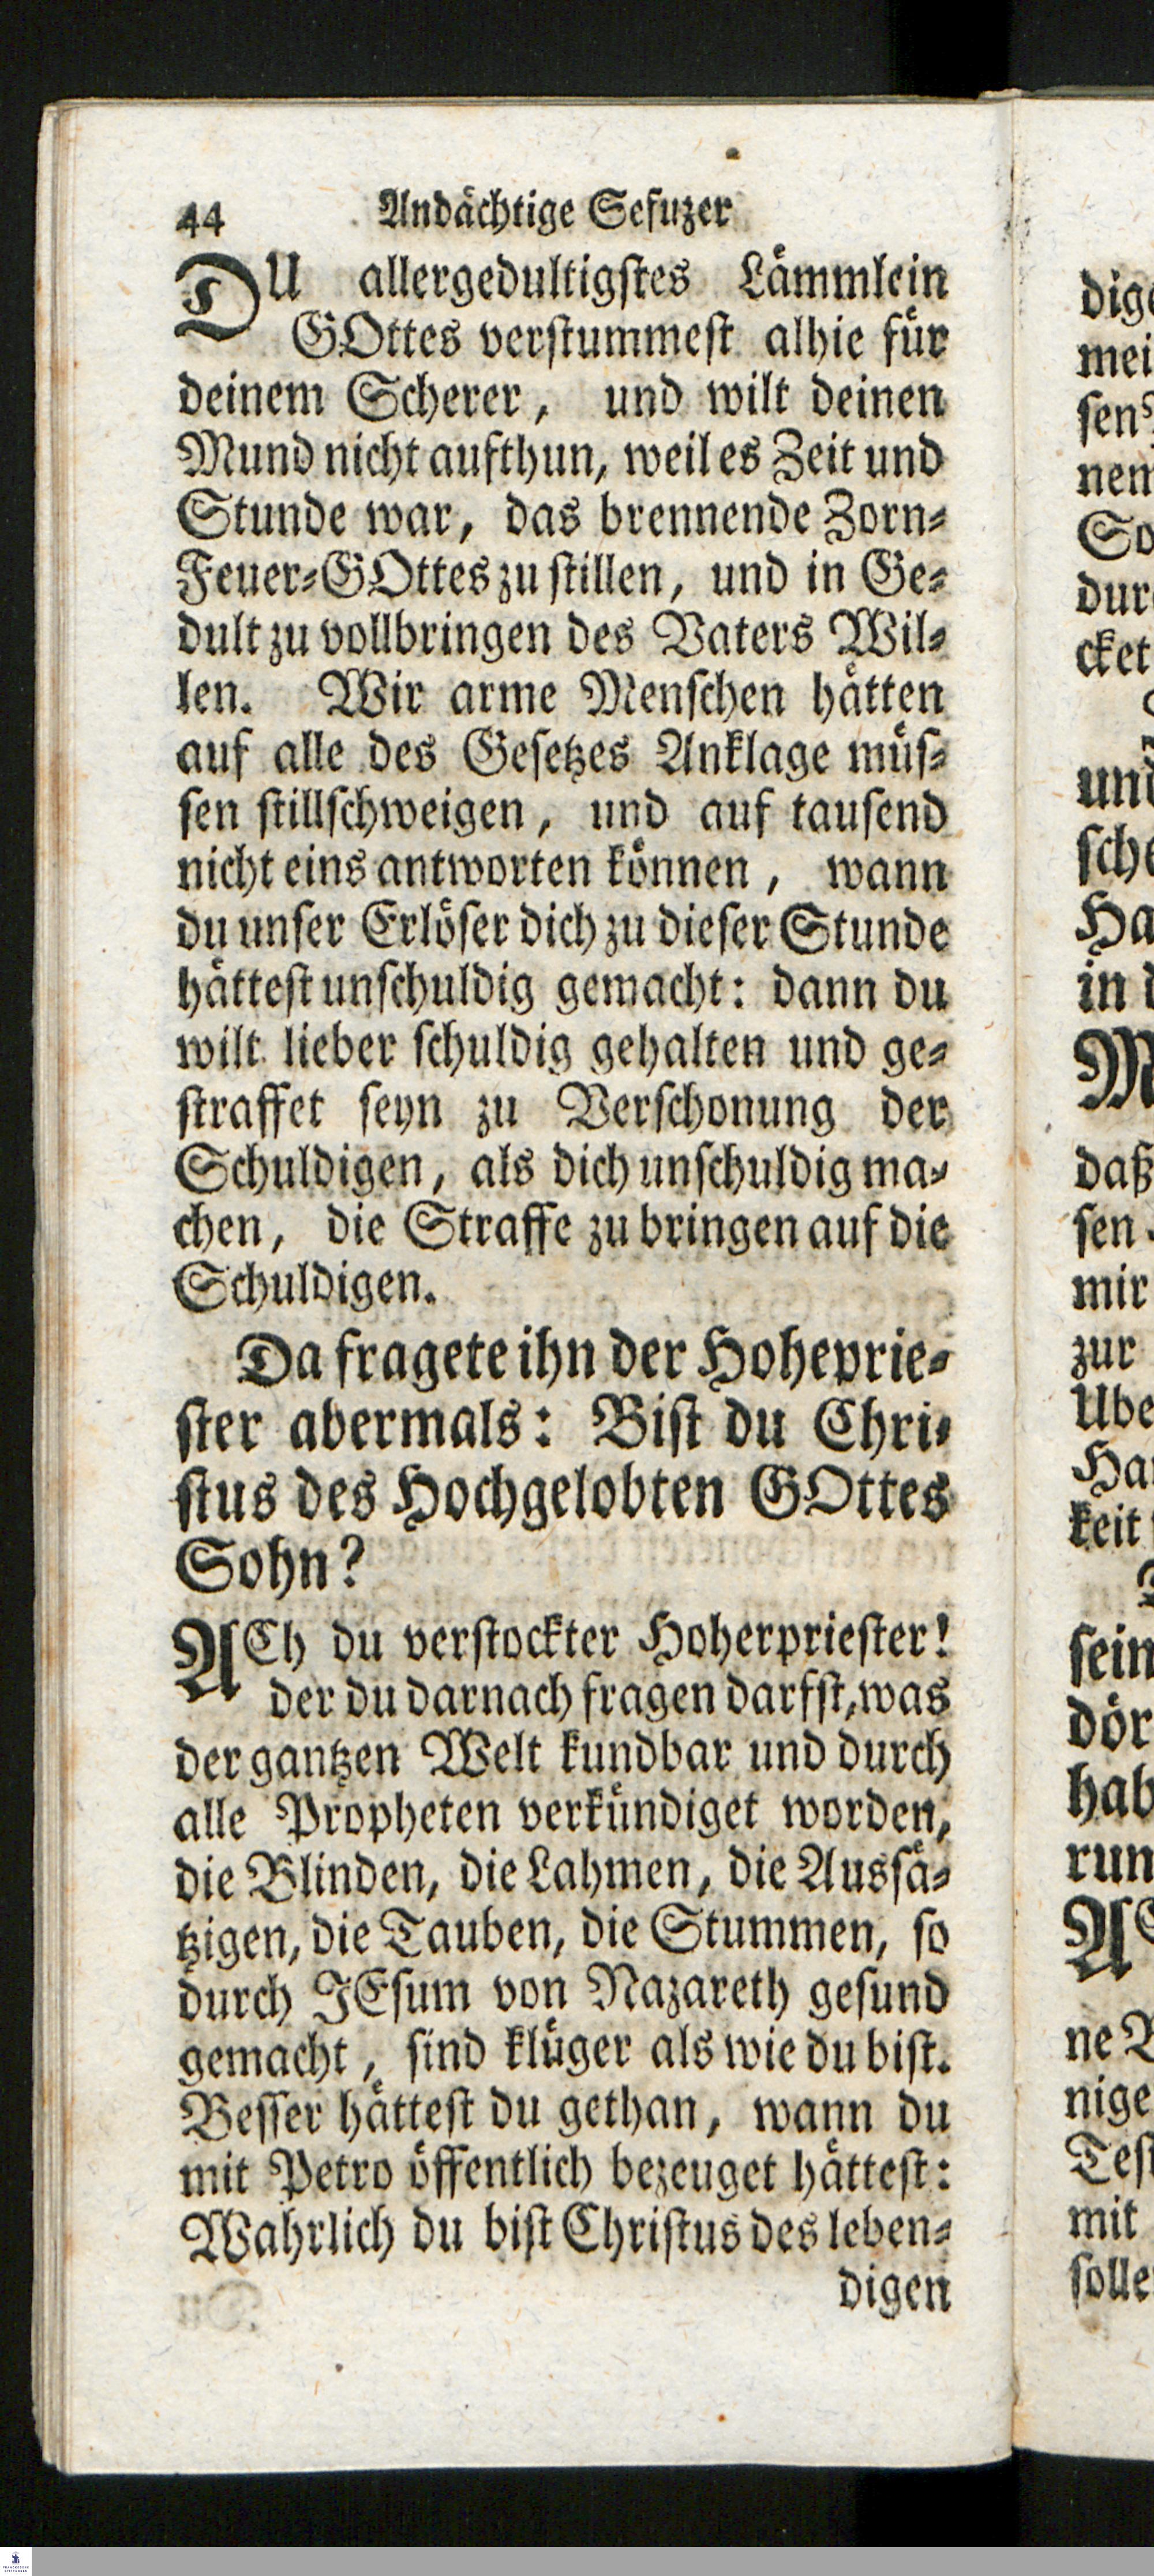 44 Andächtige Sefuzer
DU allergedultigstes Lämmlein
GOttes verstummest alhie für
deinem Scherer, und wilt deinen
Mund nicht aufthun, weil es Zeit und
Stunde war, das brennende Zorn-
Feuer-GOttes zu stillen, und in Ge-
dult zu vollbringen des Vaters Wil-
len. Wir arme Menschen hätten
auf alle des Gesetzes Anklage müs-
sen stillschweigen, und auf tausend
nicht eins antworten können, wann
du unser Erlöser dich zu dieser Stunde
hättest unschuldig gemacht: dann du
wilt lieber schuldig gehalten und ge-
straffet seyn zu Verschonung der
Schuldigen, als dich unschuldig ma-
chen, die Straffe zu bringen auf die
Schuldigen.
Da fragete ihn der Hoheprie-
ster abermals: Bist du Chri-
stus des Hochgelobten GOttes
Sohn?
ACh du verstockter Hoherpriester!
der du darnach fragen darfst, was
der gantzen Welt kundbar und durch
alle Propheten verkündiget worden,
die Blinden, die Lahmen, die Aussä-
tzigen, die Tauben, die Stummen, so
durch JEsum von Nazareth gesund
gemacht, sind klüger als wie du bist.
Besser hättest du gethan, wann du
mit Petro öffentlich bezeuget hättest:
Wahrlich du bist Christus des leben-
digen